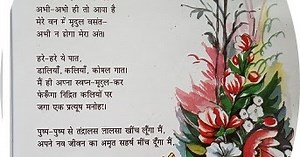 अभी-अभी ही तो आया है
मेरे वन में मृदुल वसंत–
अभी न होगा मेरा अंत।
हरे-हरे ये पात,
डालियाँ, कलियाँ, कोमल गात।
मैं ही अपना स्वप्न-मृदुल-कर
फेरूँगा निद्रित कलियों पर
जगा एक प्रत्यूष मनोहर।
पुष्प-पुष्प से तंद्रालस लालसा खींच लूँगा मैं,
अपने नव जीवन का अमृत सहर्ष सींच दूँगा मैं,